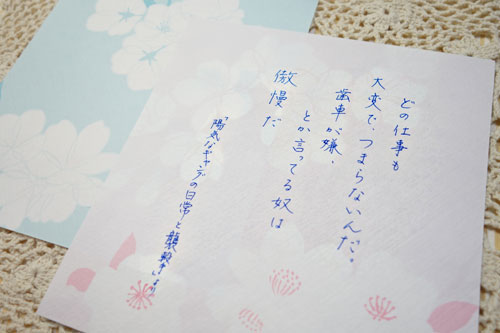 どの仕事も
大変で、つまらないんだ。
歯車が嫌、
とか言ってる奴は
傲慢だ
『陽気なギャングの日常と襲撃』より